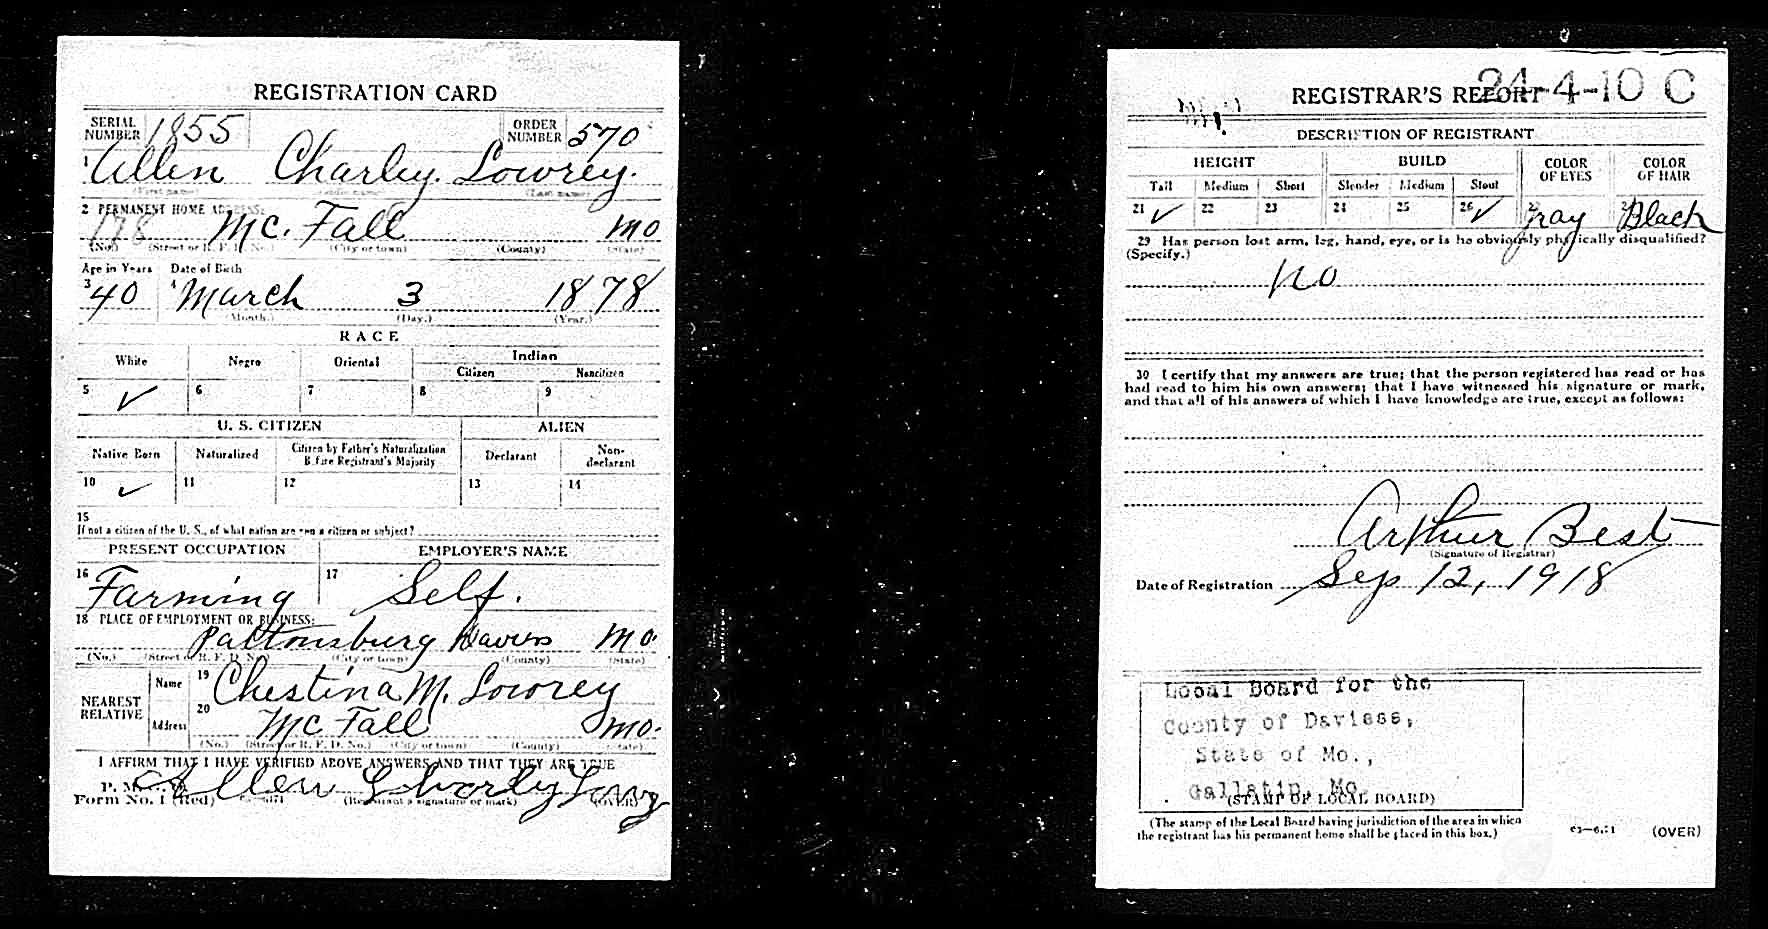 REGISTRATION CARD
SERIAL NUMBER 1855 ORDER NUMBER 570
1 Allen Charley. Lowrey.
(First name) (Middle name) (Last name)
2 PERMANENT HOME ADDRESS:
178 Mc. Fall Mo
(No.) (Street or R. F. D. No.) (City or town) (County) (State)
Age in Years Date of Birth
3 40 4 March 3 1878
(Month.) (Day.) (Year.)
RACE
White Negro Oriental Indian
Citizen Noncitizen
5 ✓ 6 7 8 9
U. S. CITIZEN ALIEN
Native Born Naturalized Citizen by Father's Naturalization Before Registrant's Majority Declarant Non-declarant
10 ✓ 11 12 13 14
15
If not a citizen of the U. S., of what nation are you a citizen or subject?
PRESENT OCCUPATION EMPLOYER'S NAME
16 Farming 17 Self.
18 PLACE OF EMPLOYMENT OR BUSINESS:
Pattonsburg Daviess Mo.
(No.) (Street or R. F. D. No.) (City or town) (County) (State)
NEAREST RELATIVE
Name 19 Chestina M. Lowrey
Address 20 Mc Fall Mo.
(No.) (Street or R. F. D. No.) (City or town) (County) (State)
I AFFIRM THAT I HAVE VERIFIED ABOVE ANSWERS AND THAT THEY ARE TRUE
P. M.
Allen Charley Lowry
Form No. 1 (Red) (Registrant's signature or mark) (OVER)
REGISTRAR'S REPORT 24-4-10 C
DESCRIPTION OF REGISTRANT
HEIGHT BUILD COLOR OF EYES COLOR OF HAIR
Tall Medium Short Slender Medium Stout
21 ✓ 22 23 24 25 26 ✓ Gray Black
29 Has person lost arm, leg, hand, eye, or is he obviously physically disqualified?
(Specify.)
No
30 I certify that my answers are true; that the person registered has read or has
had read to him his own answers; that I have witnessed his signature or mark,
and that all of his answers of which I have knowledge are true, except as follows:
Arthur Best
(Signature of Registrar)
Date of Registration Sep 12, 1918
Local Board for the
County of Daviess,
State of Mo.,
Gallatin, Mo.
(STAMP OF LOCAL BOARD)
(The stamp of the Local Board having jurisdiction of the area in which
the registrant has his permanent home shall be placed in this box.)
(OVER)